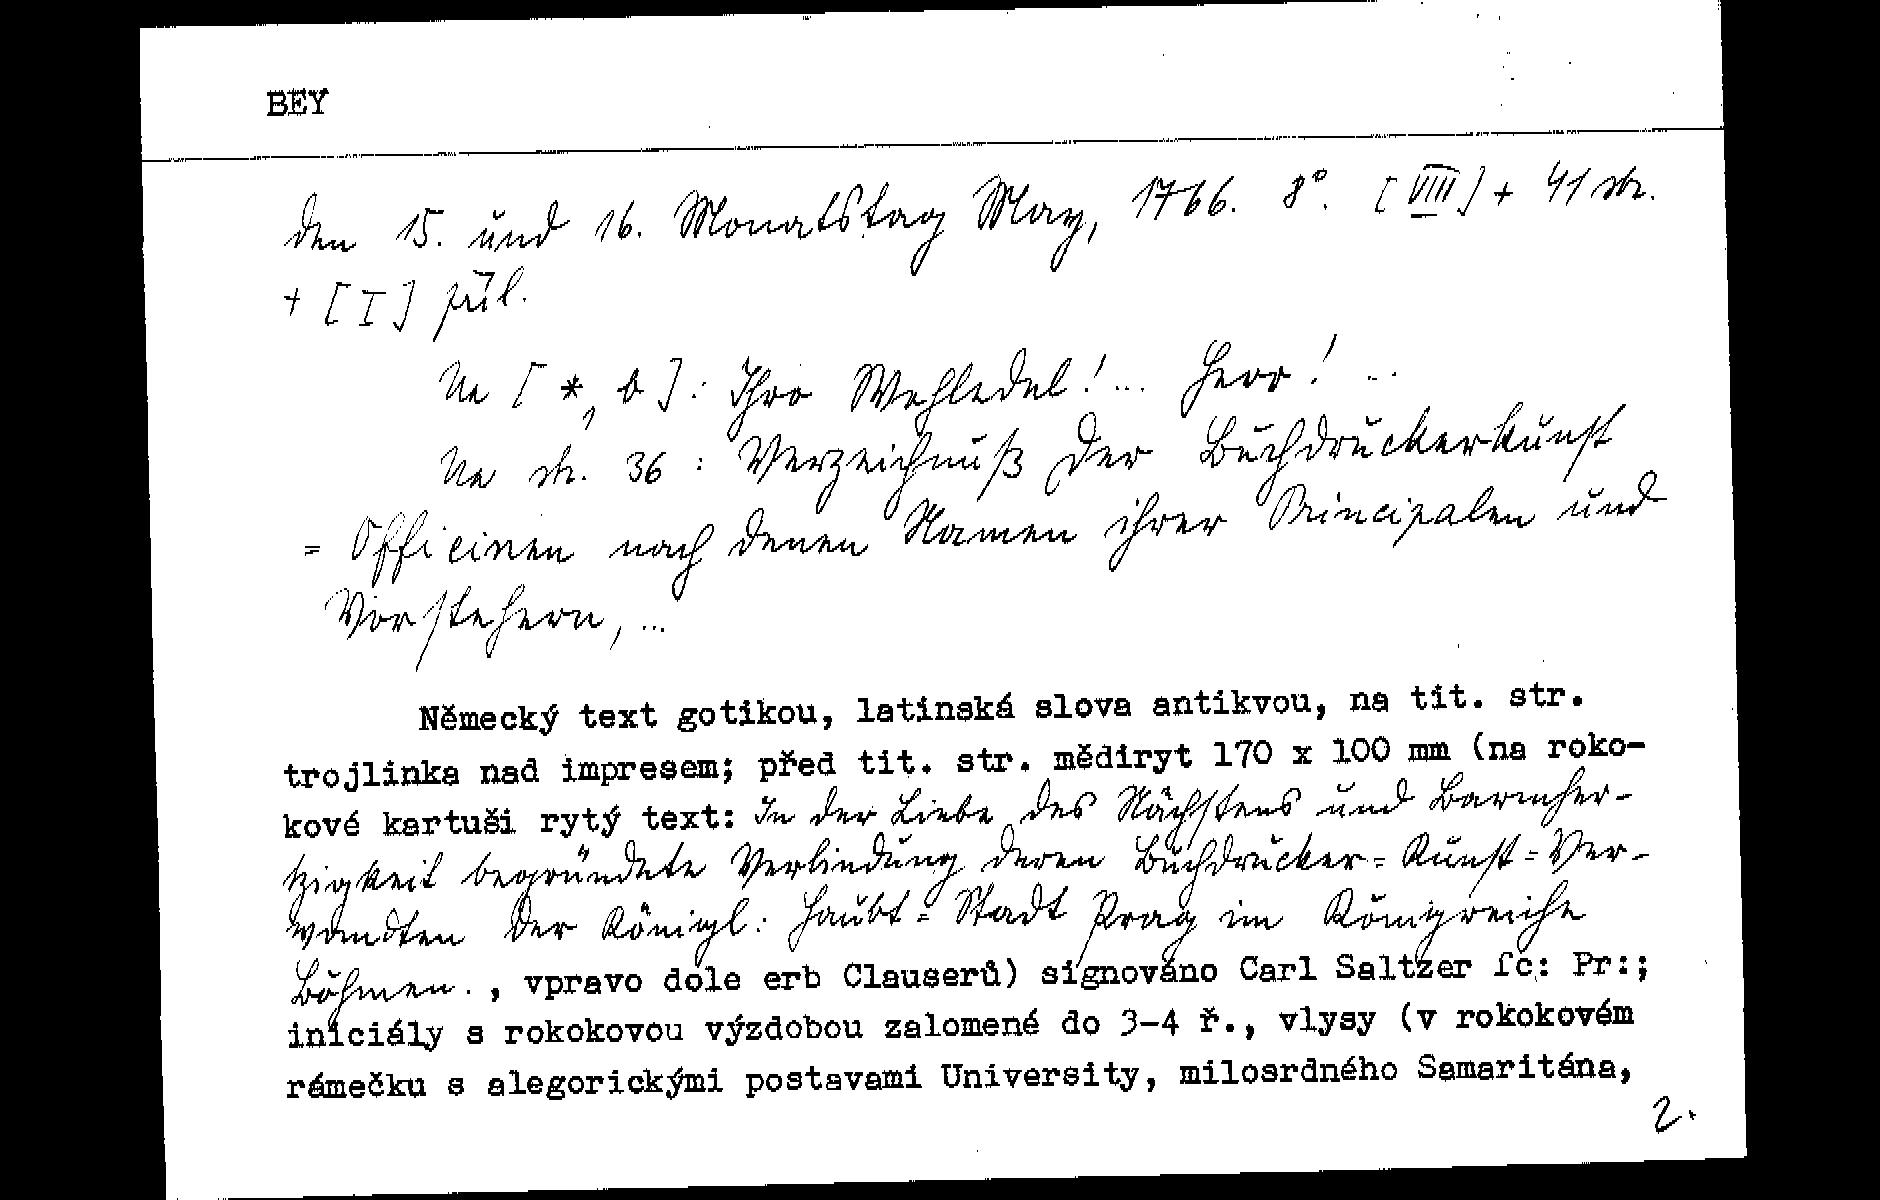 BEY
den 15. und 16. Monatstag May, 1766. 8°. [VIII] + 41 str.
+ [I] příl.
Na [*, b]: Ihro Wohledel! ... Herr! ...
Na str. 36 : Verzeichnuß der Buchdruckerkunst
= Officinen nach denen Namen ihrer Principalen und
Vorstehern, ...
Německý text gotikou, latinská slova antikvou, na tit. str.
trojlinka nad impresem; před tit. str. mědiryt 170 x 100 mm (na roko-
kové kartuši rytý text: In der Liebe des Nächstens und Barmher-
tzigkeit begründete Verbindung deren Buchdrucker=Kunst=Ver-
wandten der Königl: Haubt=Stadt Prag im Königreiche
Böhmen. , vpravo dole erb Clauserů) signováno Carl Saltzer ſc: Pr:;
iniciály s rokokovou výzdobou zalomené do 3-4 ř., vlysy (v rokokovém
rámečku s alegorickými postavami University, milosrdného Samaritána,
2.